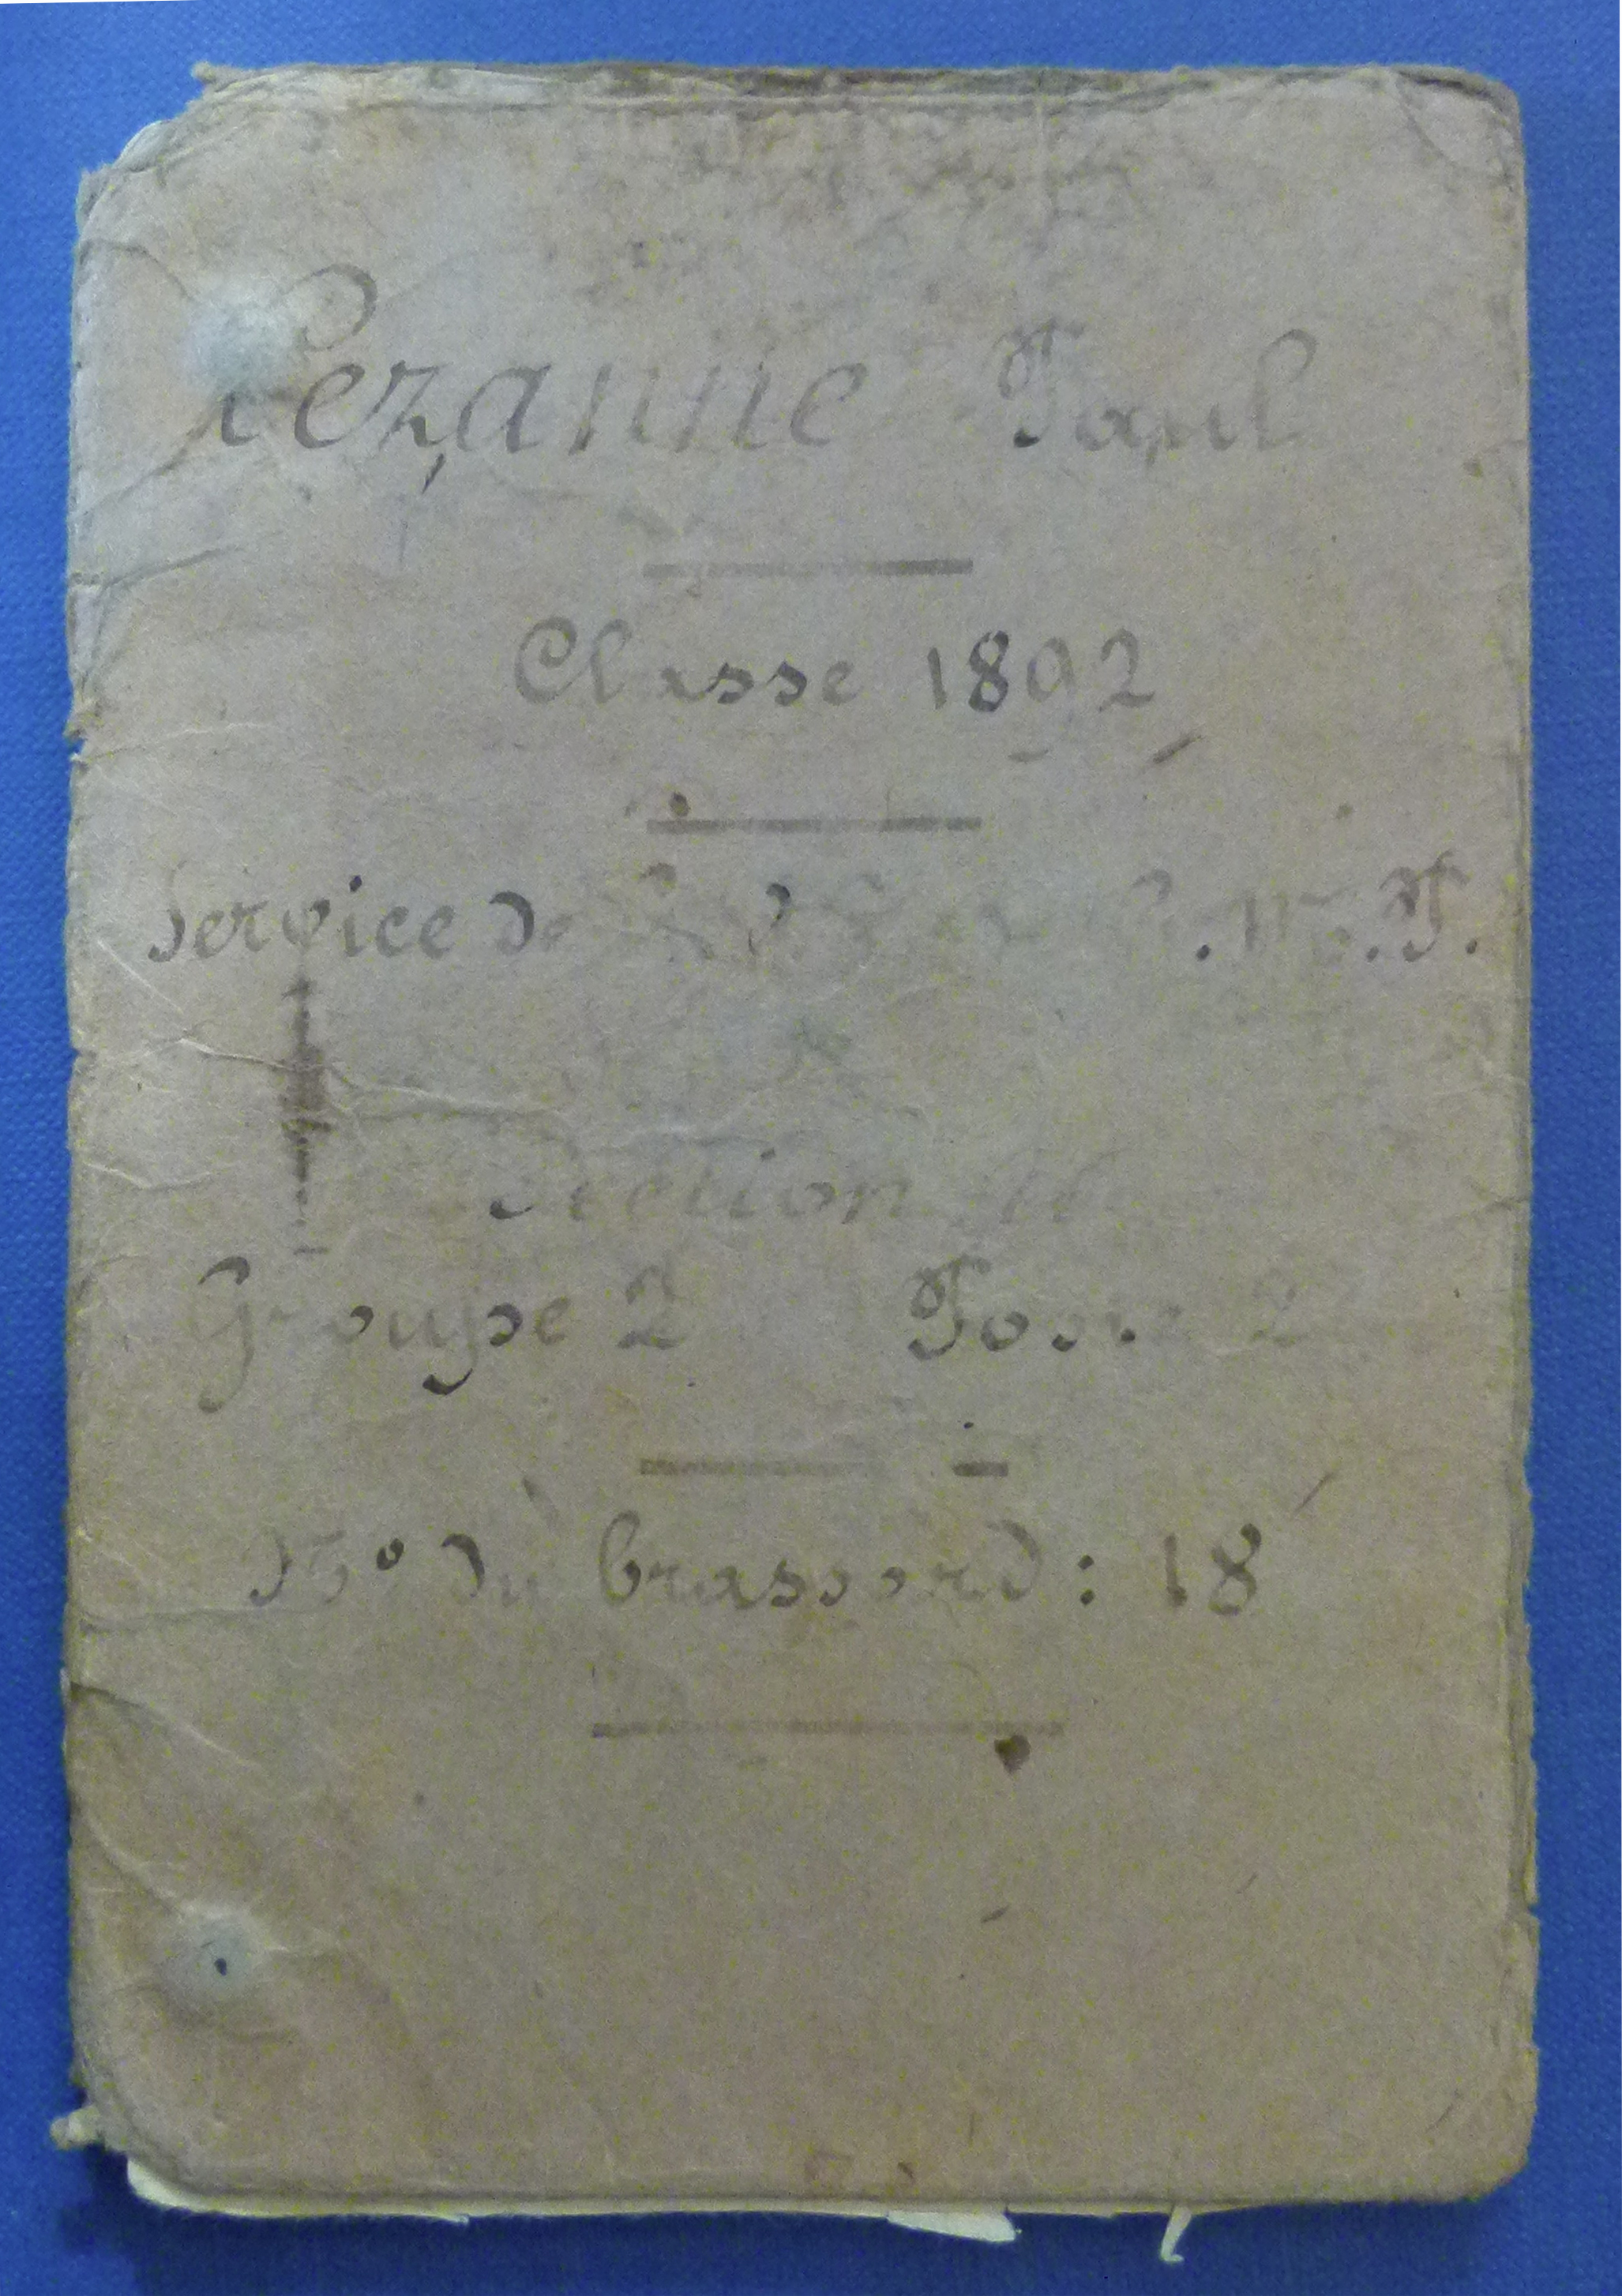 Cezanne Paul
Classe 1892
Service de
Section
Groupe 2 Poste 2
N° du brassard : 18